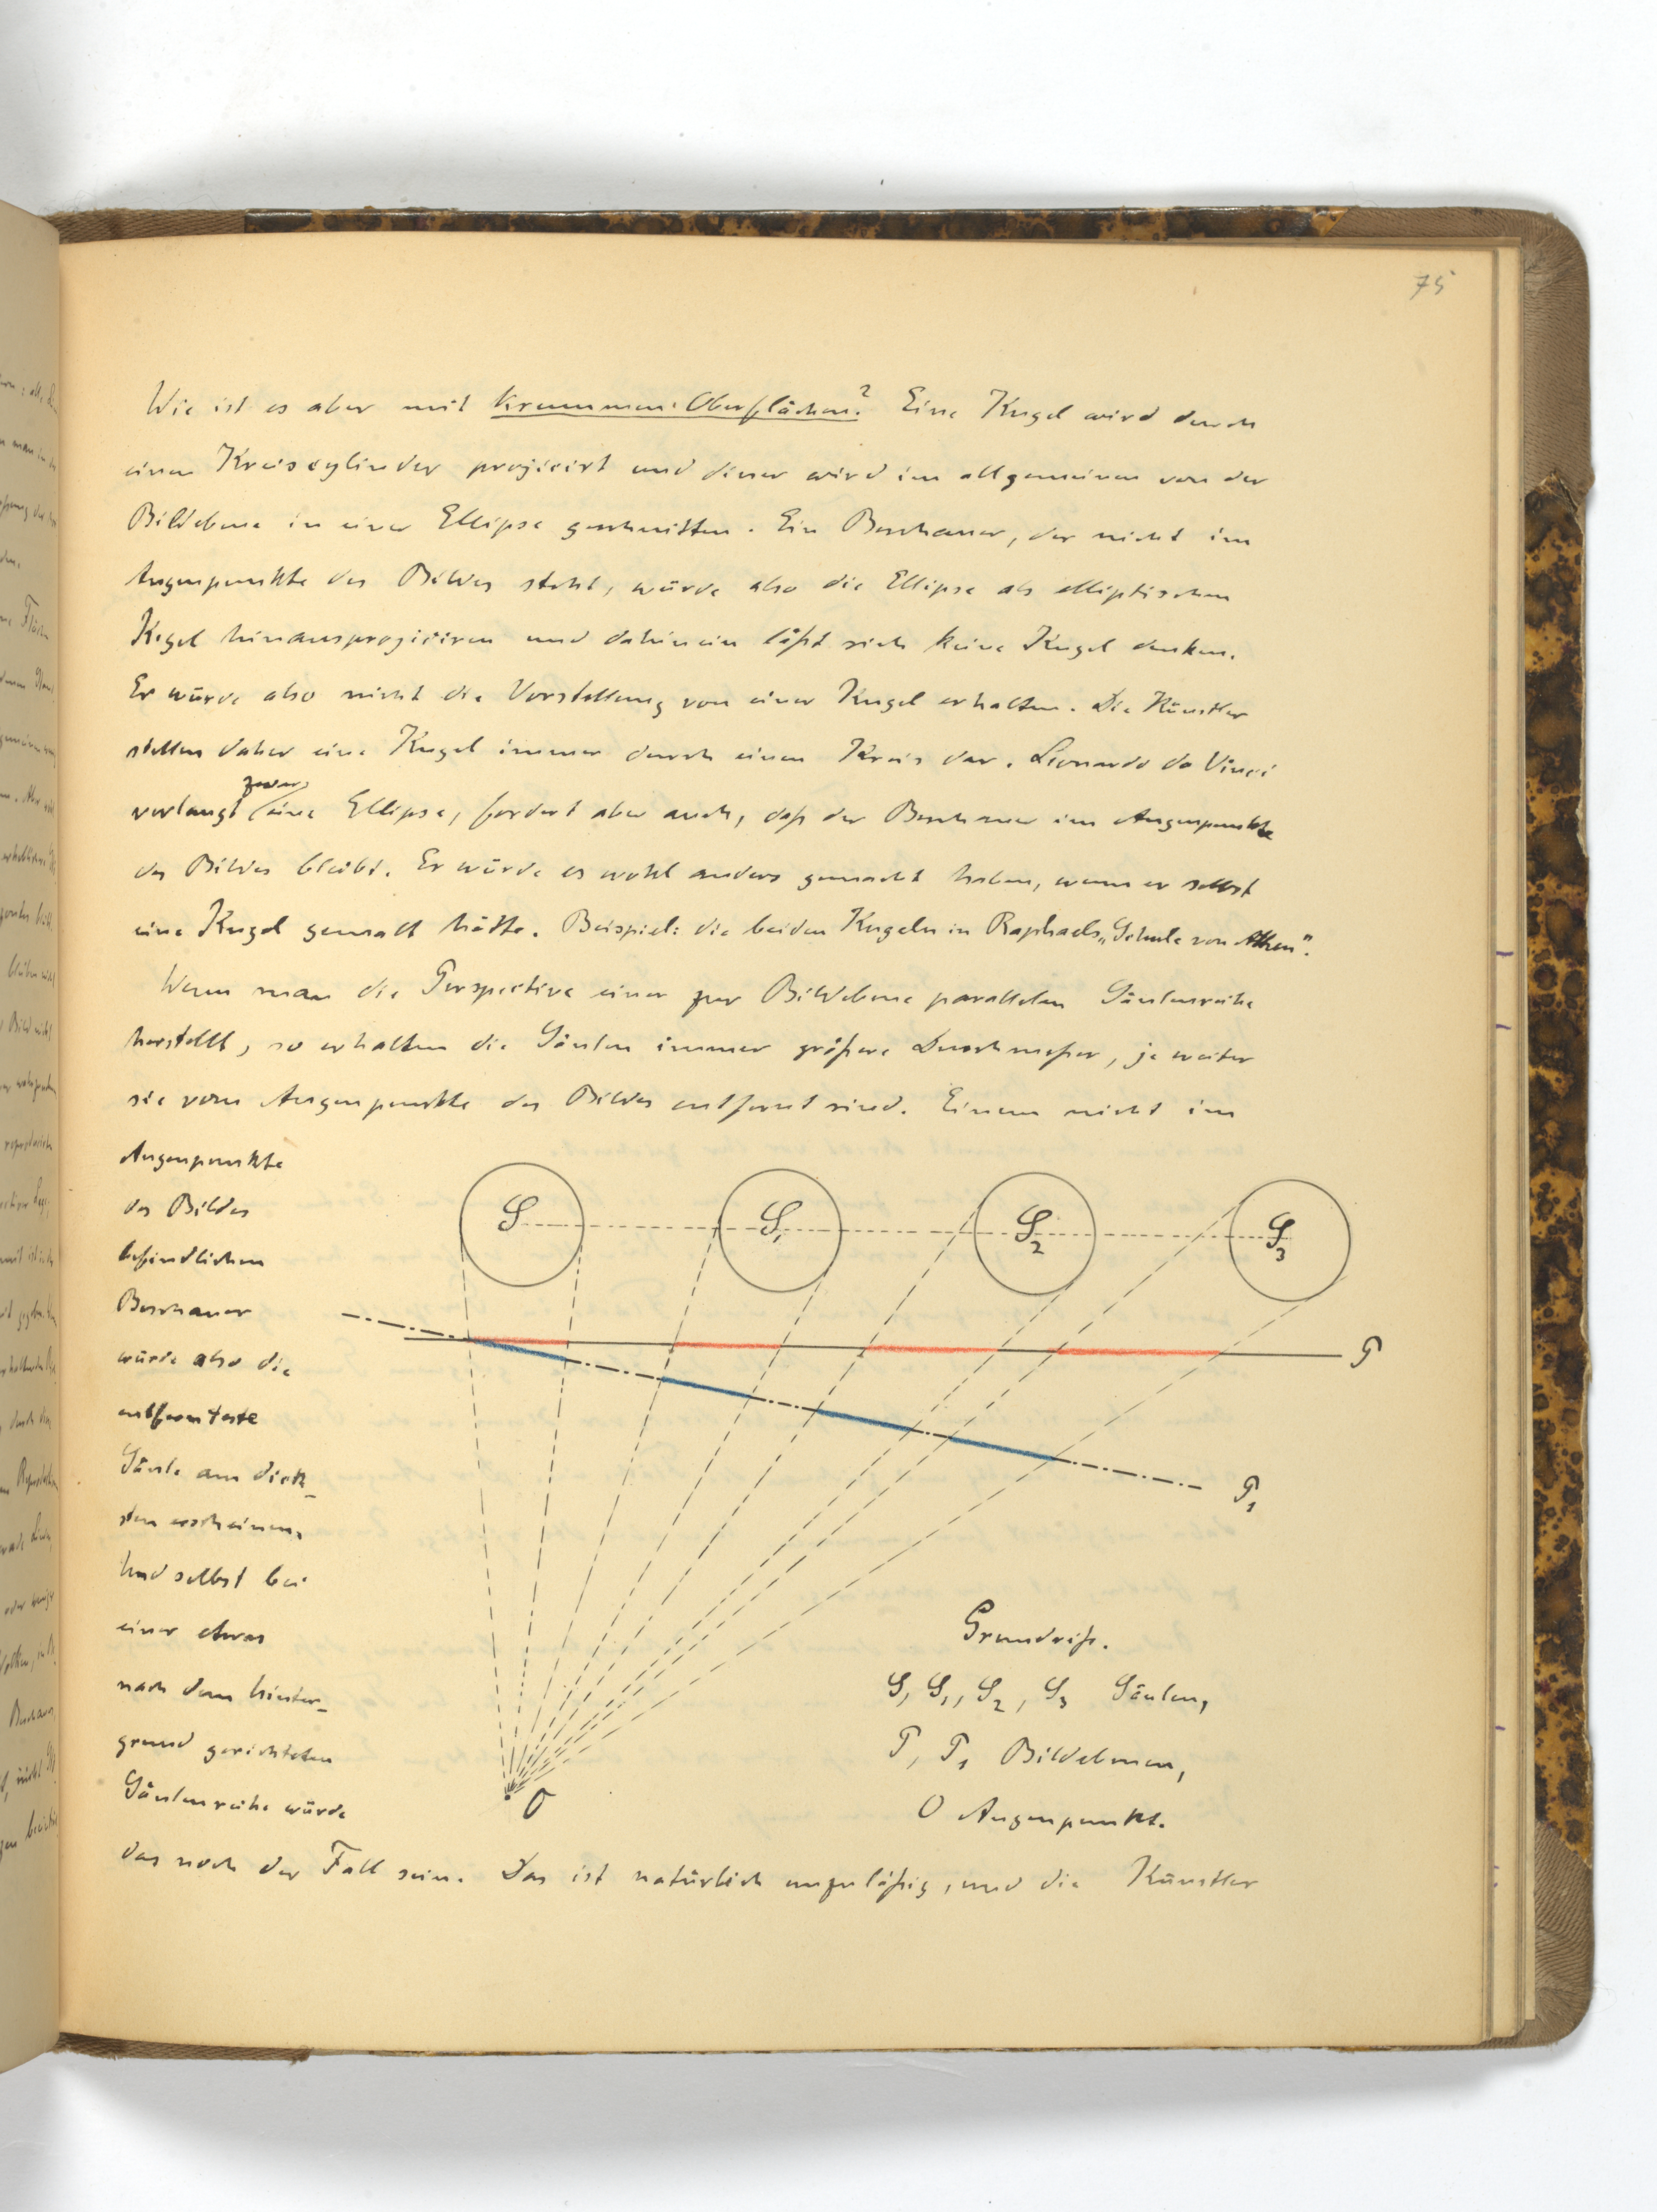 75
Wie ist es aber mit krummen Oberflächen? Eine Kugel wird durch
einen Kreiscylinder projicirt und dieser wird im allgemeinen von der
Bildebene in einer Ellipse geschnitten. Ein Beschauer, der nicht im
Augenpunkte des Bildes steht, würde also die Ellipse als elliptischen
Kegel hinausprojiciren und dahinein läßt sich keine Kugel denken.
Er würde also nicht die Vorstellung von einer Kugel erhalten. Die Künstler
stellen daher eine Kugel immer durch einen Kreis dar. Lionardo da Vinci
zwar
verlangt eine Ellipse, fordert aber auch, daß der Beschauer im Augenpunkte
des Bildes bleibt. Er würde es wohl anders gemacht haben, wenn er selbst
eine Kugel gemalt hätte. Beispiel: die beiden Kugeln in Raphaels „Schule von Athen".
Wenn man die Perspective einer zur Bildebene parallelen Säulenreihe
herstellt, so erhalten die Säulen immer größere Durchmeßer, je weiter
sie vom Augenpunkte des Bildes entfernt sind. Einem nicht im
Augenpunkte
des Bildes
befindlichen
Beschauer
würde also die
entfernteste
Säule am dick-
sten erscheinen,
Und selbst bei
einer etwas
nach dem Hinter-
grund gerichteten
Säulenreihe würde
das noch der Fall sein. Das ist natürlich unzuläßig, und die Künstler
S S₁ S₂ S₃
P
P₁
O
Grundriß.
S, S₁, S₂, S₃ Säulen,
P, P₁ Bildebenen,
O Augenpunkt.